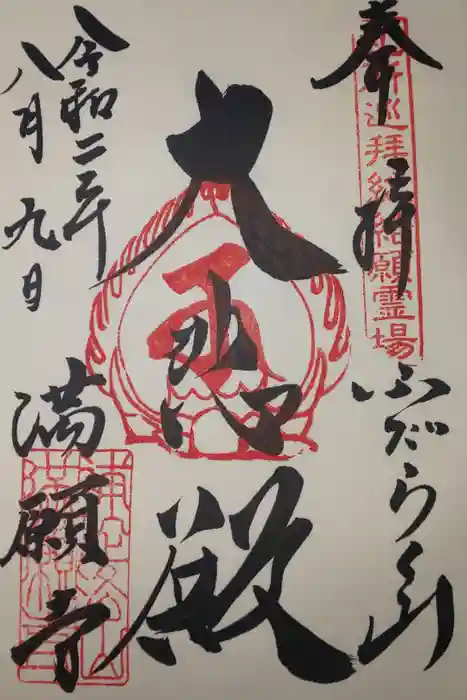 奉拝
ふだらく山
巡拝結願霊場
大悲殿
令和二年
八月九日
満願寺